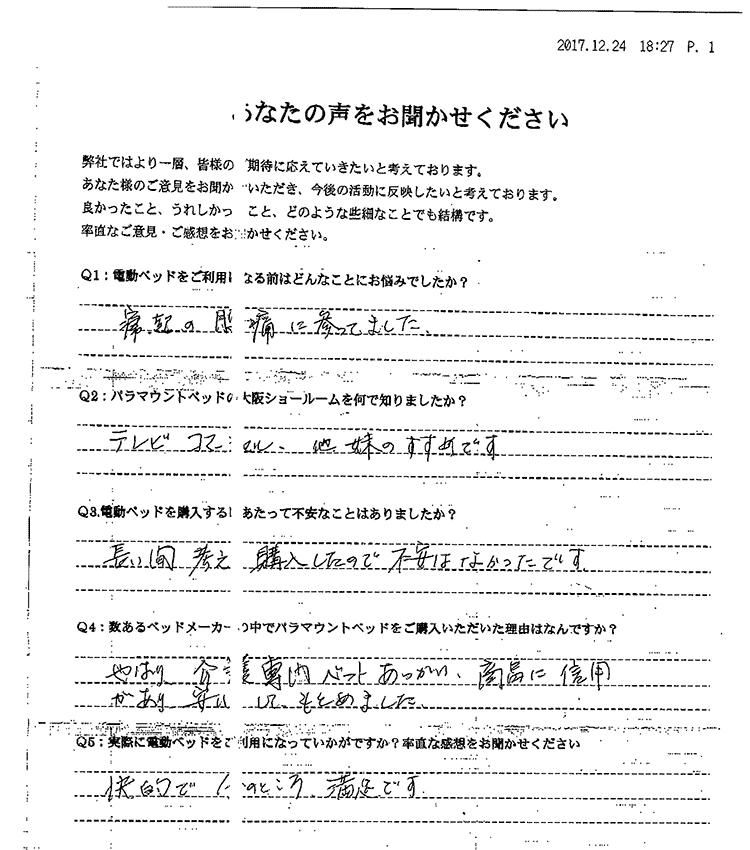 2017.12.24 18:27 P. 1
あなたの声をお聞かせください
弊社ではより一層、皆様の 期待に応えていきたいと考えております。
あなた様のご意見をお聞か いただき、今後の活動に反映したいと考えております。
良かったこと、うれしかっ こと、どのような些細なことでも結構です。
率直なご意見・ご感想をお かせください。
Q1:電動ベッドをご利用に なる前はどんなことにお悩みでしたか?
痛に参ってました、
Q2:パラマウントベッドの 大阪ショールームを何で知りましたか?
テレビ コマ ル、他 妹のすすめです
Q3.電動ベッドを購入するに あたって不安なことはありましたか?
長い間 考え 購入したので不安はなかったです
Q4:数あるベッドメーカー の中でパラマウントベッドをご購入いただいた理由はなんですか?
やはり 介護専門ベットあつかい、商品に信用
があり 安心 して、もとめました、
Q5:実際に電動ベッドをご 利用になっていかがですか?率直な感想をお聞かせください
快的で のところ 満足です